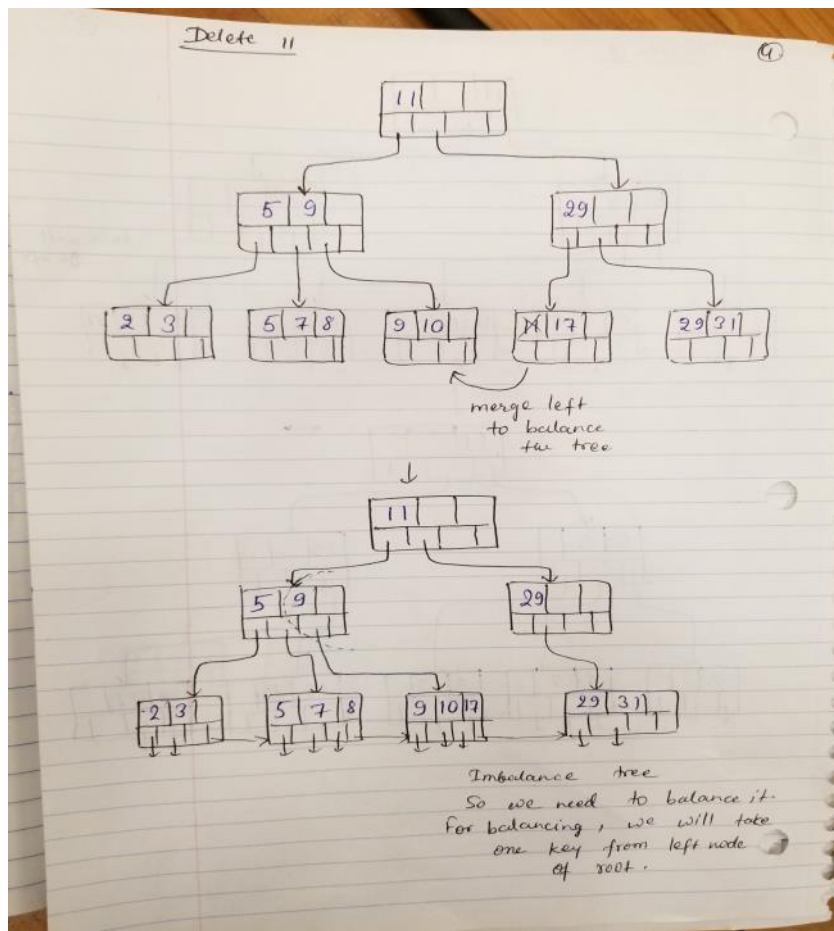 Delete 11
4
11
5 9
29
2 3
5 7 8
9 10
11 17
29 31
merge left
to balance
the tree
11
5 9
29
2 3
5 7 8
9 10 17
29 31
Imbalance tree
So we need to balance it.
For balancing, we will take
one key from left node
of root.